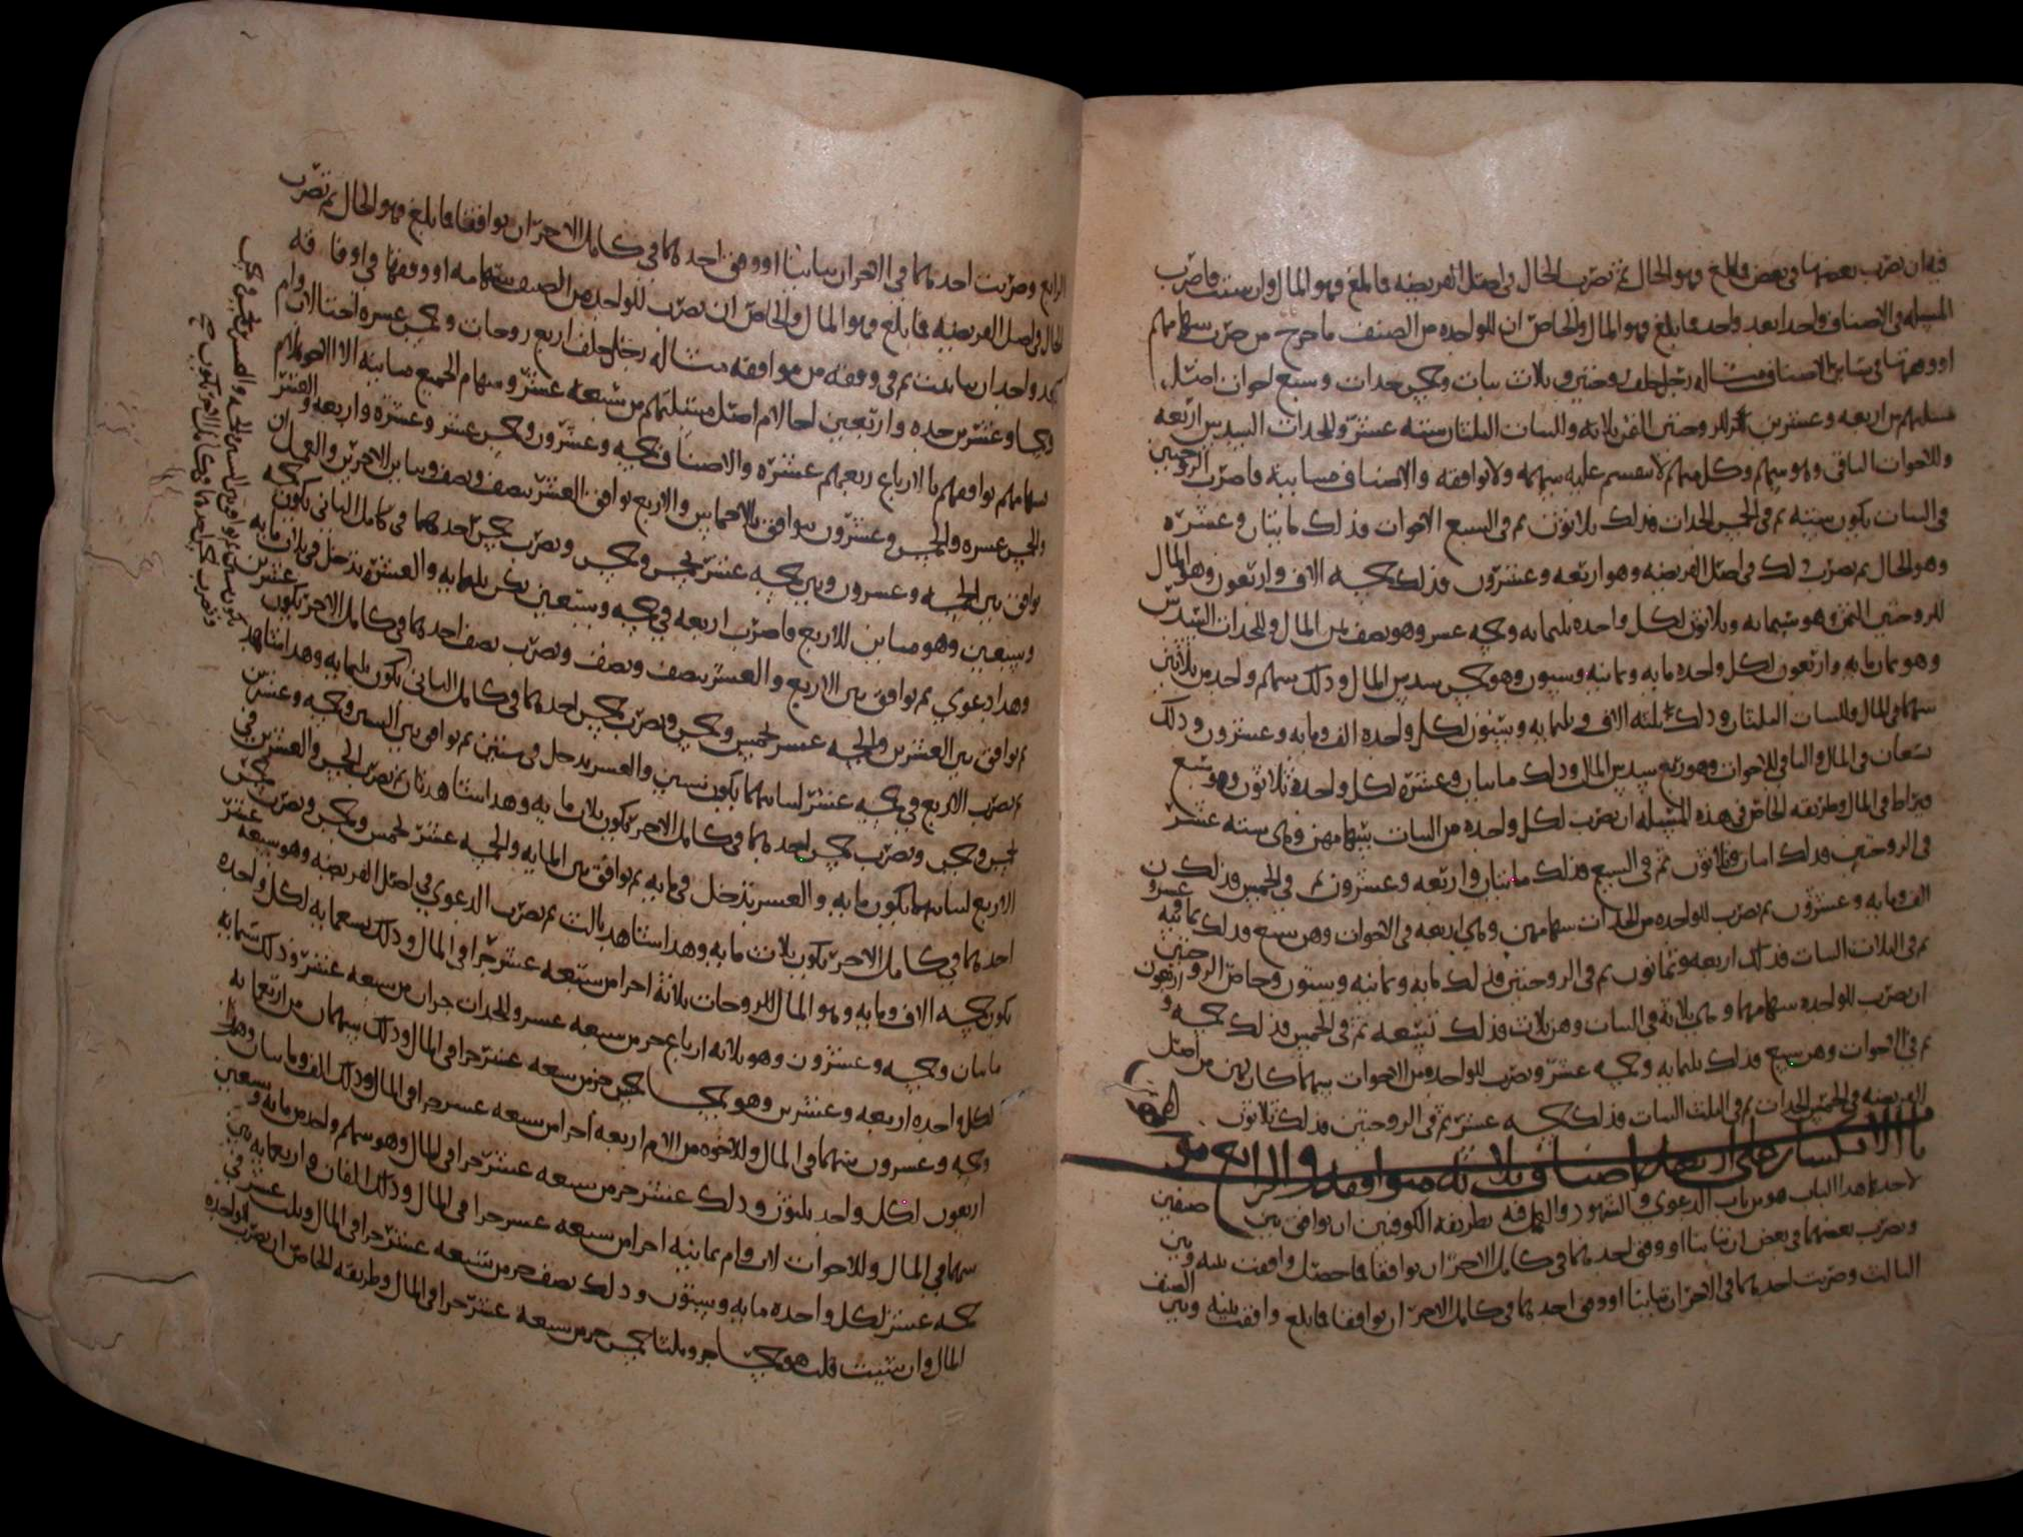 فيه ان تضرب بعضها في بعض فما بلغ فهو الحال ثم تضرب الحال في اصل الفريضه فما بلغ فهو المال وان شئت فاضرب
المسله في الاصناف واحدا بعد واحد فما بلغ فهو المال والخاص ان للواحده من الصنف ما خرج من ضرب سهامهم
او وفقها في سائر الاصناف مثاله رجل خلف زوجتين وثلاث بنات وخمس جدات وسبع اخوات اصل
مسلتهم من اربعه وعشرين للزوجتين الثمن ثلاثه وللبنات الثلثان سته عشر وللجدات السدس اربعه
وللاخوات الباقي وهو سهم وكل منهم لا تنقسم عليه سهمه ولا توافقه والاصناف متباينة فاضرب الزوجتين
في البنات يكون سته ثم في الخمس الجدات فذلك ثلاثون ثم في السبع الاخوات فذلك مائتان وعشره
وهو الحال ثم تضرب ذلك في اصل الفريضه وهو اربعه وعشرون فذلك خمسه الاف واربعون وهو المال
للزوجتين الثمن وهو ستمائه وثلاثون لكل واحده ثلثمائه وخمسه عشر وهو نصف ثمن المال وللجدات السدس
وهو ثمان مائه واربعون لكل واحده مائه وثمانيه وستون وهو خمس سدس المال وذلك سهم واحد من ثلاثين
سهما في المال وللبنات الثلثان وذلك ثلثه الاف وثلثمائه وستون لكل واحده الف ومائه وعشرون وذلك
تسعان في المال والباقي للاخوات وهو ربع سدس المال وذلك مائتان وعشره لكل واحده ثلاثون وهو سبع
قيراط في المال وطريقه الخاص في هذه المسله ان تضرب لكل واحده من البنات سهامهن وهي سته عشر
في الزوجتين فذلك اثنان وثلاثون ثم في السبع فذلك مائتان واربعه وعشرون ثم في الخمس فذلك
الف ومائه وعشرون ثم تضرب للواحده من الجدات سهامهن وهي اربعه في الاخوات وهن سبع فذلك ثمانيه وعشرون
ثم في الثلاث البنات فذلك اربعه وثمانون ثم في الزوجتين فذلك مائه وثمانيه وستون وخاص الزوجتين
ان تضرب للواحده سهامهما وهي ثلاثة في البنات وهن ثلاث فذلك تسعه ثم في الخمس فذلك خمسه واربعون
ثم في الاخوات وهن سبع فذلك ثلثمائه وخمسه عشر وتضرب للواحده من الاخوات سهما كان لهن من اصل
الفريضه في الخمس الجدات ثم في الثلث البنات فذلك خمسه عشر ثم في الزوجتين فذلك ثلاثون
باب الانكسار على اربعه اصناف ثلاثه متوافقه والرابع مو
لاحدها هذا الباب هو من باب الدعوى والشهود والعمل فيه بطريقه الكوفيين ان توافق بين صنفين
وتضرب بعضهما في بعض ان تباينا او وفق احدهما في كامل الاخر ان توافقا فما حصل وافقت بينه وبين
الثالث وضربت احدهما في الاخر ان تباينا او وفق احدهما في كامل الاخر ان توافقا فما بلغ وافقت بينه وبين الصنف
الرابع وضربت احدهما في الاخر ان تباينا او وفق احدهما في كامل الاخر ان توافقا فما بلغ فهو الحال ثم تضرب
الحال في اصل الفريضه فما بلغ فهو المال والخاص ان تضرب للواحده من الصنف سهامه او وفقها في اوفاقه
واحد ان باينت ثم في وفقه من موافقه مثاله رجل خلف اربع زوجات وخمس عشره اختا لاب وام
وخمسا وعشرين جده واربعين اخا لام اصل مسئلتهم من سبعه عشر وسهام الجميع مباينه الا الاخوه للام
سهامهم توافقهم بالارباع ربعهم عشره والاصناف خمسه وعشرون وخمس عشر وعشره واربعه والعشر
والخمس عشره والخمس وعشرون توافق بالاخماس والاربع توافق العشر بنصف ونصف وتباين الاخرين والعمل ان
توافق بين الخمسه وعشرون وبين خمسه عشر بخمس وخمس وتضرب خمس احدهما في كامل الثاني يكون خمسه
وسبعين وهو مباين للاربع فاضرب اربعه في خمسه وسبعين يكن ثلثمائه والعشره تدخل في ثلث مايه
وهذا دعوى ثم توافق بين الاربع والعشر بنصف ونصف وتضرب نصف احدهما في كامل الاخر يكون عشرين
ثم توافق بين العشرين والخمسه عشر بخمس وخمس وتضرب خمس احدهما في كامل الثاني يكون ستين
ثم تضرب الاربع في خمسه عشر لتباينهما يكون ستين والعشر يدخل في ستين ثم توافق بين الستين وخمسه وعشرين
بخمس وخمس وتضرب خمس احدهما في كامل الاخر يكون ثلاث مايه وهذا شاهد ثان ثم تضرب الخمس والعشرين في
الاربع لتباينهما يكون مايه والعشر تدخل في مايه ثم توافق بين المايه والخمسه عشر بخمس وخمس وتضرب خمس
احدهما في كامل الاخر يكون ثلاث مايه وهذا شاهد ثالث ثم تضرب الدعوى في اصل الفريضه وهو سبعه عشر
يكون خمسه الاف ومايه وهو المال للزوجات ثلاثة اجزا من سبعه عشر جزا في المال وذلك تسعمايه لكل واحده
مايتان وخمسه وعشرون وهو ثلاثه ارباع جز من سبعه عشر وللجدات جزان من سبعه عشر وذلك ستمايه
لكل واحده اربعه وعشرين وهو خمسا خمس جز من سبعه عشر جزا في المال وذلك سهمان من اربعمايه
وخمسه وعشرون سهما في المال وللاخوه من الام اربعه اجزا من سبعه عشر جزا في المال وذلك الف ومايتان وهم
اربعون لكل واحد ثلثون وذلك عشر جز من سبعه عشر جزا في المال وهو سهم واحد من مايه وسبعين
سهما في المال وللاخوات لاب وام ثمانيه اجزا من سبعه عشر جزا في المال وذلك الفان واربعمايه بين
خمسه عشر لكل واحده مايه وستون وذلك نصف جز من سبعه عشر جزا في المال وثلث عشر في
المال وان شئت قلت هو خمسا جز وثلثا خمس جز من سبعه عشر جزا في المال وطريقه الخاص ان تضرب للواحده